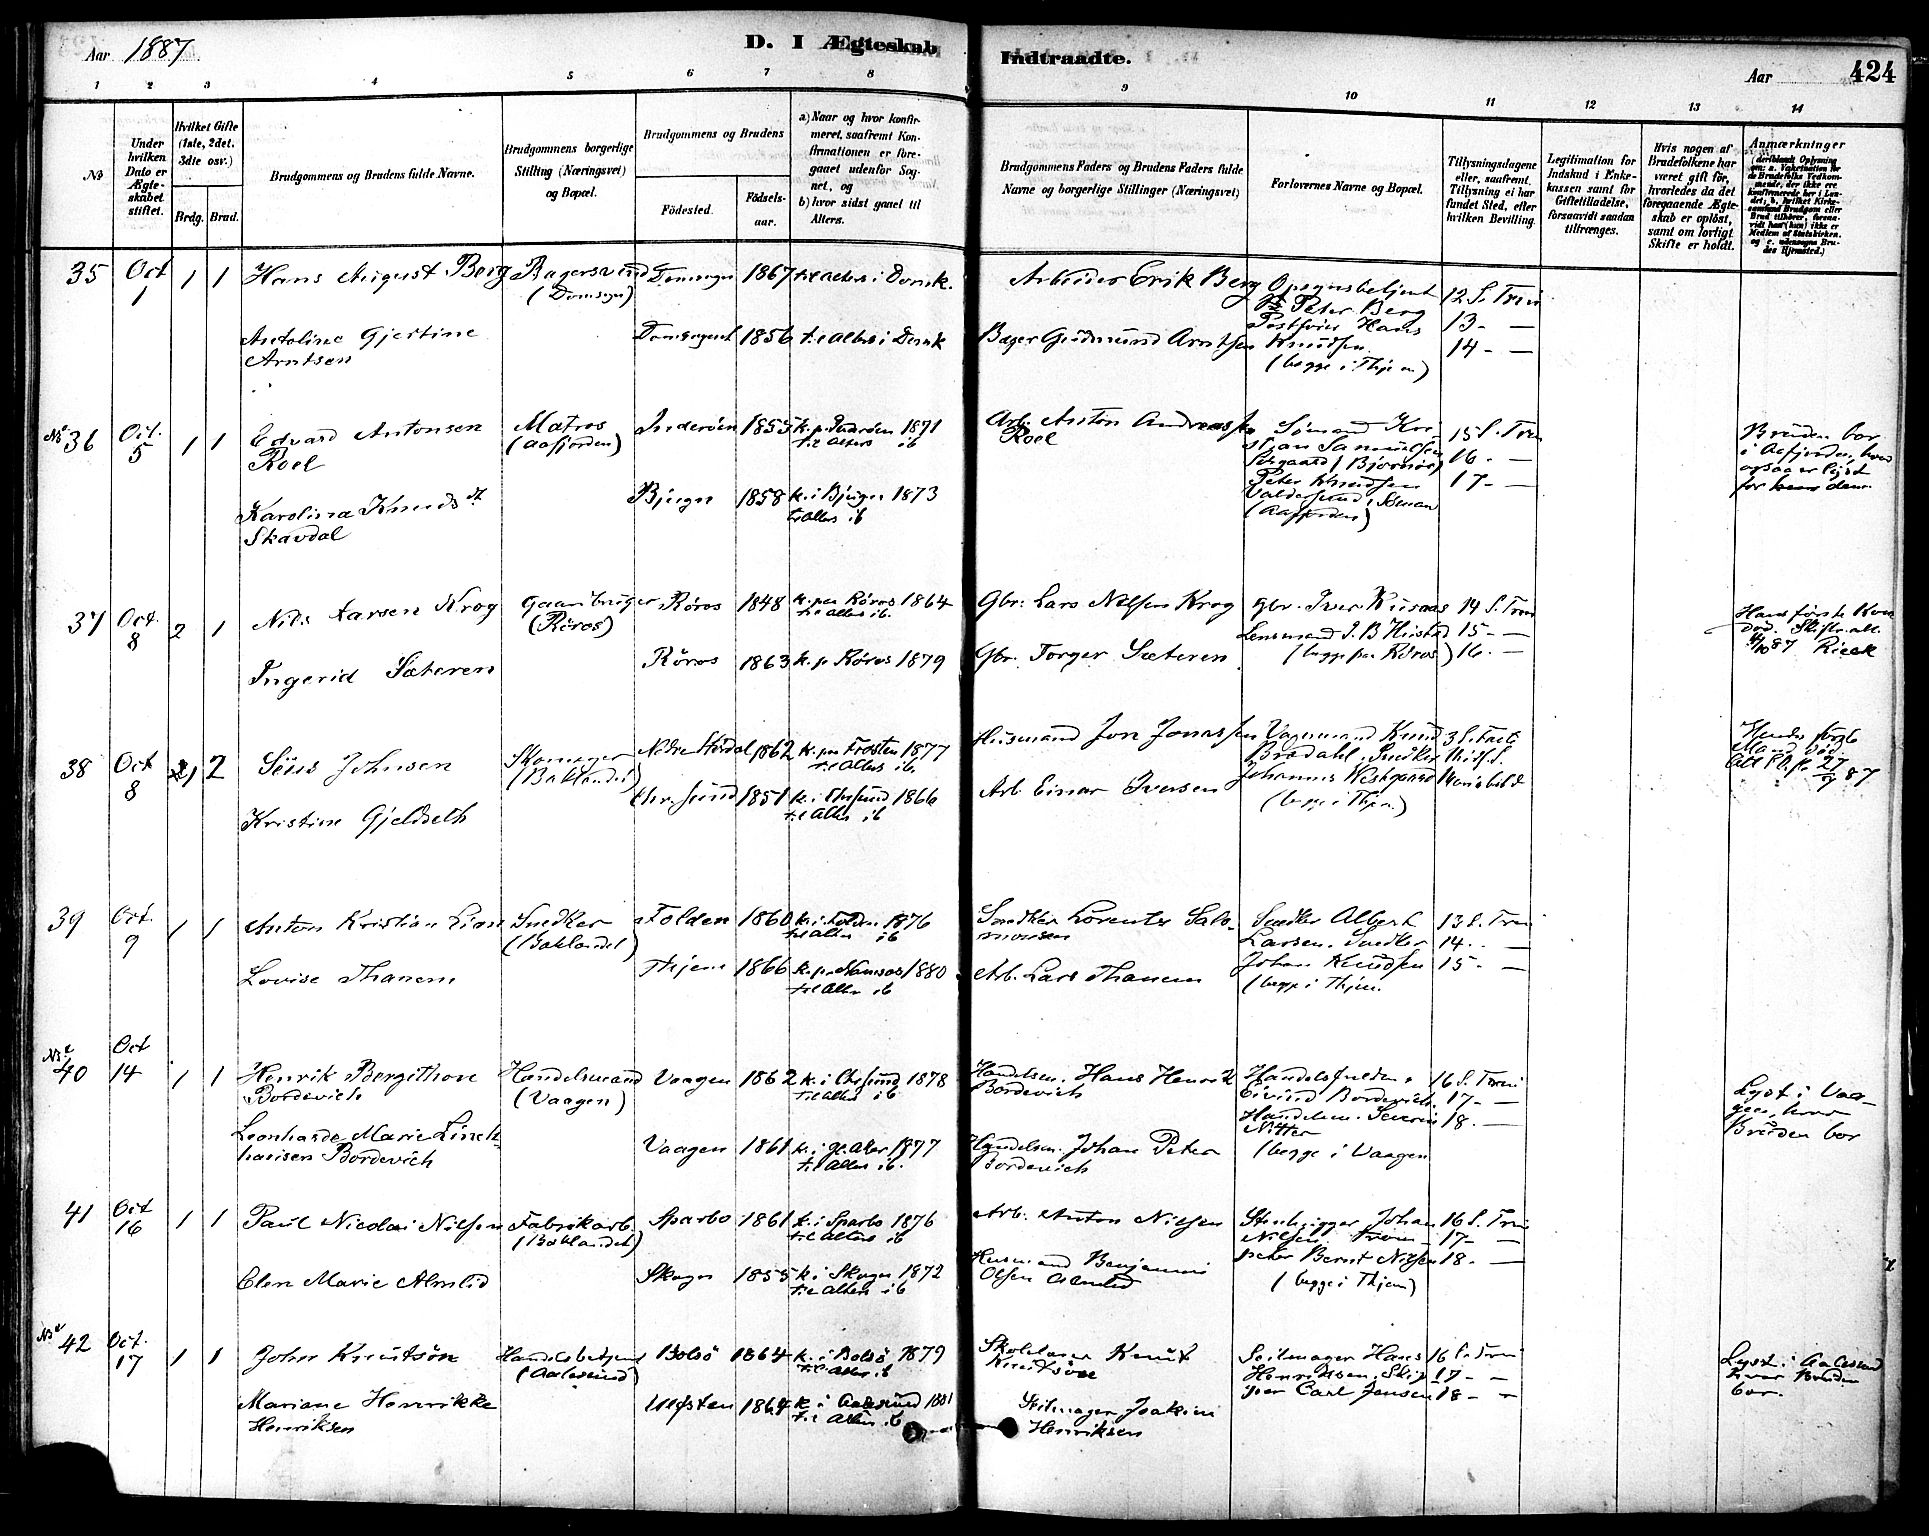 Aar 1887.
D. I Ægteskab
Indtraadte.
Aar
424
1 2 3 4 5 6 7 8 9 10 11 12 13 14
No
Under hvilken Dato er Ægteskabet stiftet.
Hvilket Gifte (1ste, 2det, 3die osv.)
Brdg. Brud.
Brudgommens og Brudens fulde Navne.
Brudgommens borgerlige Stilling (Næringsvei) og Bopæl.
Brudgommens og Brudens
Fødested.
Fødselsaar.
a) Naar og hvor konfirmeret, saafremt Konfirmationen er foregaaet udenfor Sognet, og
b) hvor sidst gaaet til Alters.
Brudgommens Faders og Brudens Faders fulde Navne og borgerlige Stillinger (Næringsvei)
Forlovernes Navne og Bopæl.
Tillysningsdagene eller, saafremt Tillysning ei har fundet Sted, efter hvilken Bevilling.
Legitimation for Indskud i Enkekassen samt for Giftetilladelse, forsaavidt saadan tiltrænges.
Hvis nogen af Brudefolkene har været gift før, hvorledes da det foregaaende Ægteskab er opløst, samt om lovligt Skifte er holdt.
Anmærkninger
35 Oct 1 1 1
Hans August Berg
(Domsogn)
Domsogn 1867 til alters i Domk.
Arbeider Erik Berg
Opsynsbetjent
Peter Berg
Hans
Knudsen
(begge i Thjem)
12 S. Trin
13 - —
14 - —
Antoline Gjertine
Arntsen
Domsognet 1856 til Alters i Domk
Bager Gudmund Arntsen
36 Oct. 5 1 1
Edvard Antonsen
Roel
Matros
(Aafjorden)
Inderøen 1855 k. p. Inderøen 1871
til Alters ib
Arb. Anton Andreassen
Roel
Peter Knudsen
(Aafjorden)
15 S. Trin
16 - —
17 - —
Bruden bor
i Aafjorden, hvor
ogsaa er lyst
for dem.
Karolina Knudsdt
Skavdal
Bjugn 1858 k. i Bjugn 1873
til Alters ib
37 Oct. 8 2 1
Nils Larsen Krog
Gaardbruger
(Røros)
Røros 1848 k. paa Røros 1864
til Alters ib.
Gbr. Lars Nilsen Krog
Gbr. Iver
Lensmand J. B.
(begge paa Røros)
14 S. Trin
15 - —
16 - —
Hans første Kone
død. Skifte. att.
Ingerid Sæteren
Røros 1863 k. p. Røros 1879
Gbr. Torger Sæteren
38 Oct 8 1 2
Johnsen
Skomager
(Baklandet)
Nedre Stjørdal 1862 k. paa Frosten 1877
til Alters ib.
Husmand Jon Jonassen
Vognmand Knud
Brødahl, Snedker
Johannes
(begge i Thjem)
Hendes første
Mand død.
Kristine Gjeldseth
Chr.sund 1851 k. i Chrsund 1866
til Alters ib
Arb. Einar Iversen
39 Oct. 9 1 1
Anton Kristian Lian
Snedker
(Baklandet)
Folden 1860 k. i Folden 1876
til Alters ib
Snedker Lorents Salomonsen
Snedker Albert
Larsen. Snedker
Johan Knudsen
(begge i Thjem.
13 S. Trin
14 - —
15 - —
Lovise Thanem
Thjem 1866 k. p. Namsos 1880
til Alters ib
Arb. Lars Thanem
40 Oct 14 1 1
Henrik Bergithon
Bordevich
Handelsmand
(Vaagen)
Vaagen 1862 k. i Chrsund 1878
til Alters ib.
Handelsm. Hans Henrik
Bordevich
Eivind Bordevich.
Handelsm. Severin
Nitter
(begge i Vaagen
16 S. Trin
17 - —
18 - —
Lyst i Vaagen, hvor
Bruden bor
Leonharde Marie
Bordevich
Vaagen 1861 k. i Gl. Aker 1877
til Alters ib.
Handelsm. Johan Peter
Bordevich
41 Oct 16 1 1
Paul Nicolai Nilsen
Fabrikarb.
(Baklandet)
Sparbo 1861 k. i Sparbo 1876
til Alters ib
Arb. Anton Nilsen
Stenhugger Johan
Nilsen.
Bernt Nilsen
(begge i Thjem)
16 S. Trin
17 - —
18 - —
Elen Marie Almlid
Skogn 1855 k. i Skogn 1872
til Alters ib
Husmand Benjamin
Olsen Almlid
42 Oct. 17 1 1
John Knutsøn
Handelsbetjent
(Aalesund)
Bolsø 1864 k. i Bolsø 1879
til Alters ib
Skolelærer Knut
Knutsøn
Seilmager Hans
Henriksen, Skipper Carl Jensen
16 S. Trin
17 - —
18 - —
Lyst i Aalesund
hvor Bruden
bor.
Mariane Henrikke
Henriksen
1864 k. i Aalesund 1881
til Alters ib
Seilmager Joakim
Henriksen